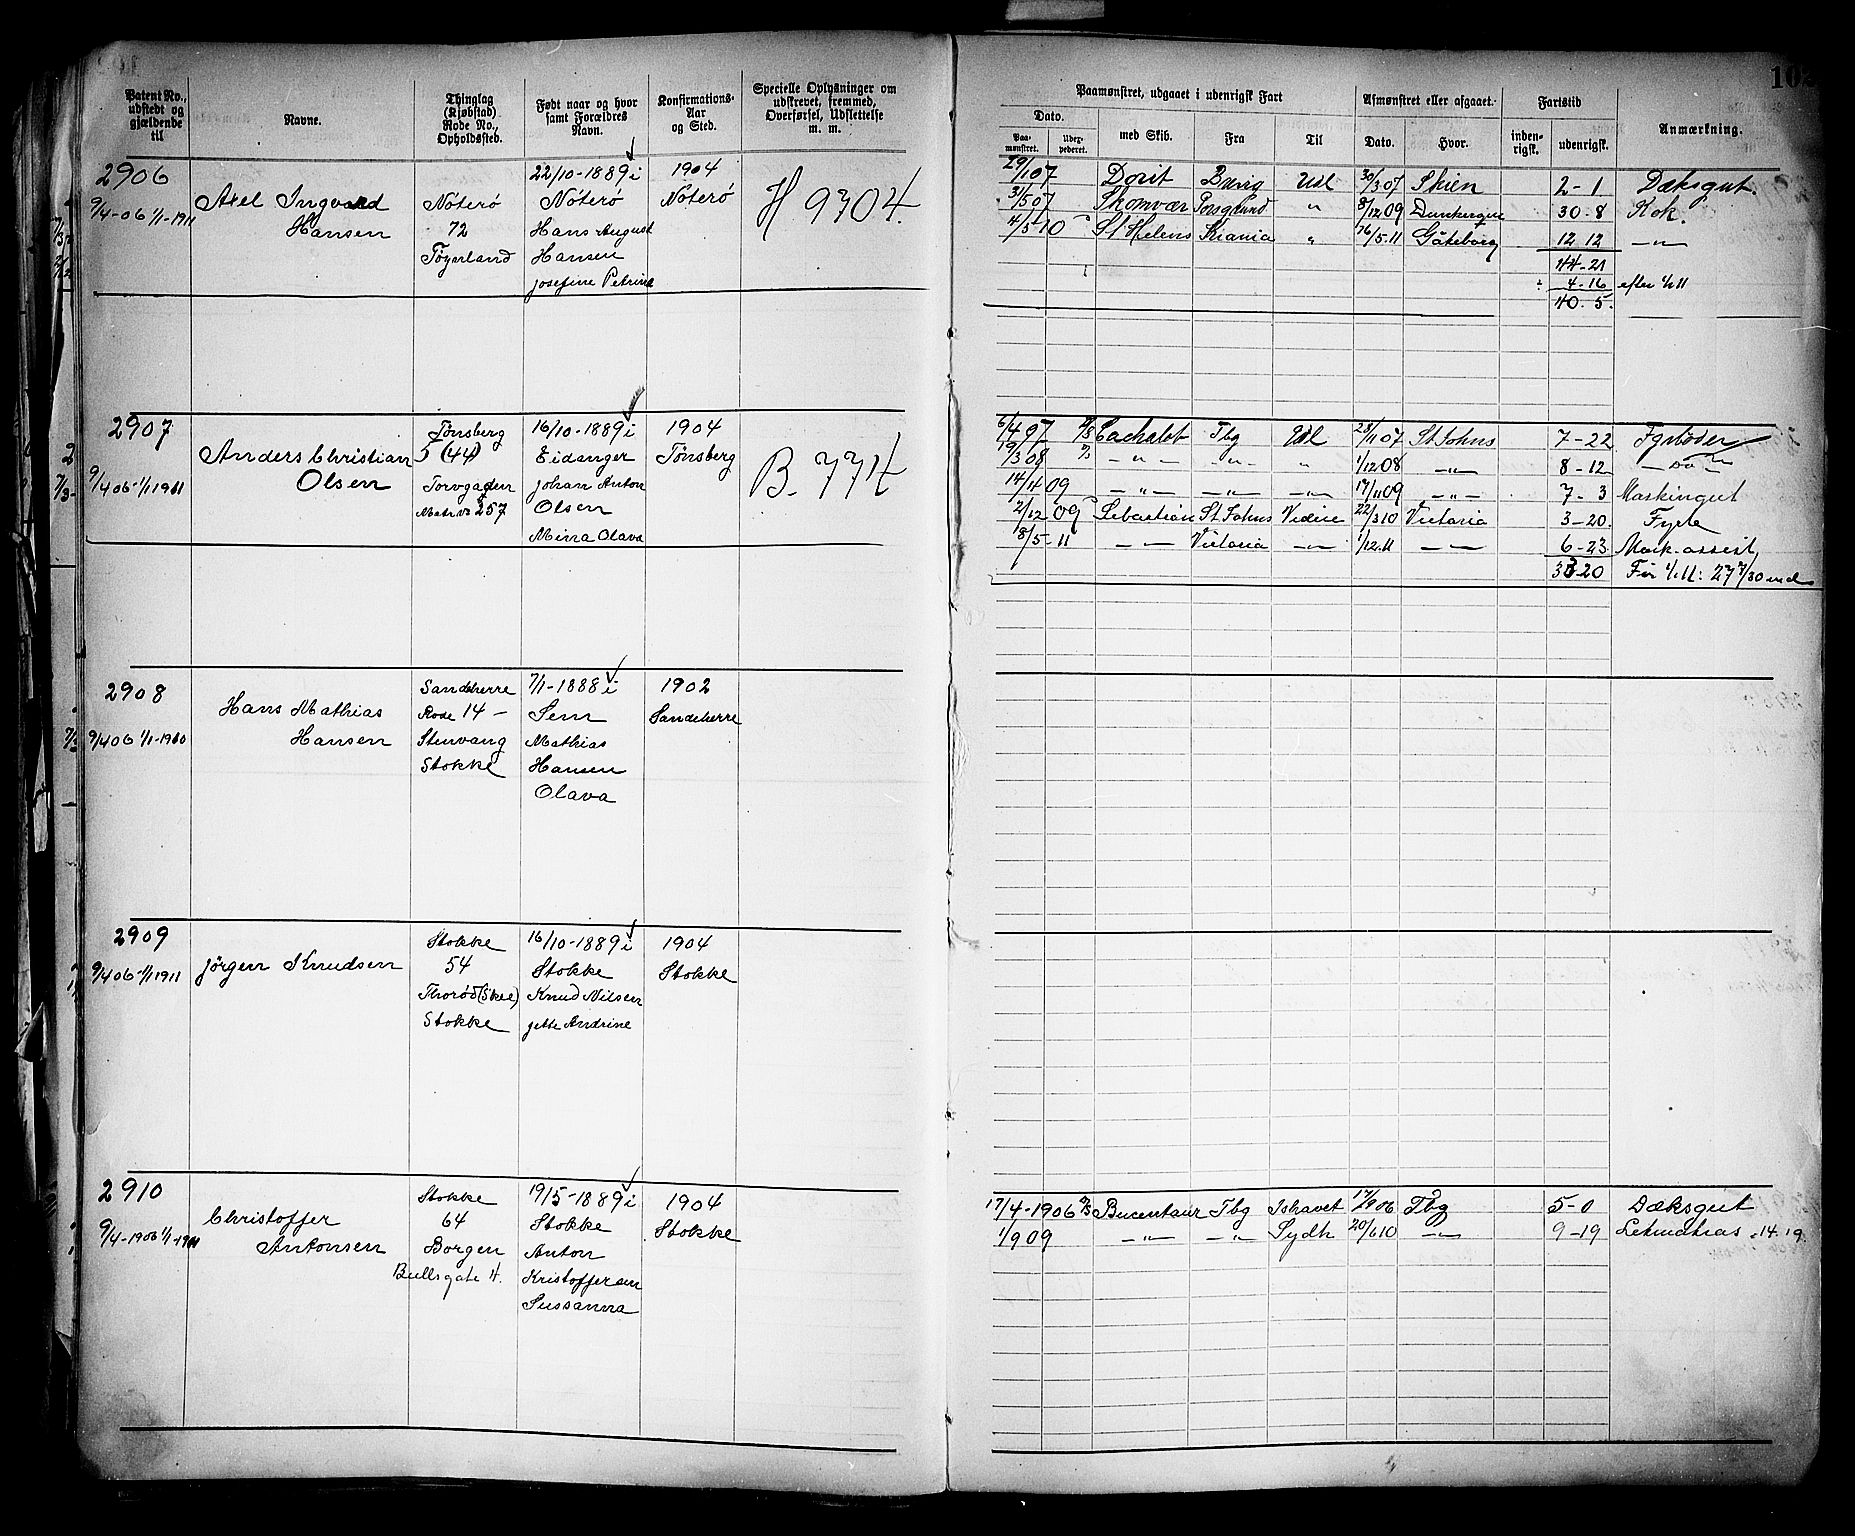 Patent No., udstedt og gjældende til
Navne.
Thinglag (Kjøbstad) Rode No., Opholdssted.
Født naar og hvor samt Forældres Navn.
Konfirmations-Aar og Sted.
Specielle Oplysninger om udskrevet, fremmed, Overførsel, Udslettelse m. m.
Paamønstret, udgaaet i udenrigsk Fart
Afmønstret eller afgaaet.
Fartstid
Anmærkning.
Dato.
Paamønstret.
med Skib.
Fra
Til
Dato.
Hvor.
indenrigsk.
udenrigsk.
2906
9/4-06 1/1-1911
Axel Ingvard
Hansen
Nøterø
72
22/10-1889 i
Nøterø
Hans August
Hansen
Josefine Petrine
1904
Nøterø
H 9304.
29/1 07 Dorit Brevig Udl 30/3 07 Skien 2-1 Dæksgut.
31/5 07 Skomvær Porsgrund " 8/12 09 Dunkerque 30-8 Kok.
4/5-10 St Helens Kiania " /5 11 Gøteborg 12 12 —"—
44-21
÷ 4-16 efter 1/1 11
40.5.
2907
9/4 06-1/1 1911
Anders Christian
Olsen
Tønsberg
5 (44)
Torvgaden
Matr No 257
16/10-1889 i
Eidanger
Johan Anton
Olsen
Mina Olava
1904
Tønsberg
B. 774
6/4 07 Cachalot Tbg Udl 28/11 07 St Johns 7-22 Fyrbøder
19/3 08 —"— —"— " 1/12 08 —"— 8-12 —do—
14/4 09 —"— —"— —"— 17/11 09 —"— 7-3 Maskingut
2/12 09 Sebastian St Johns 22/3 10 Victoria 3-20. Fyrb
8/5-11 —"— Victoria —"— 1/12 11 —"— 6-23 Mask. assist,
33-20 Før 1/1 11: 27 7/30 md
2908
9/4 06 1/1-1910
Hans Mathias
Hansen
Sandeherre
Rode 14 —
Stenvang
Stokke
7/1-1888 i
Sem
Mathias
Hansen
Olava
1902
Sandeherre
2909
9/4 06-1/1 1911
Jørgen Knudsen
Stokke
54
Thorød (Skee)
Stokke
16/10-1889 i
Stokke
Knud Nilsen
Jette Andrine
1904
Stokke
2910
9/4-1906 1/1-1911
Christoffer
Antonsen
Stokke
64
Borgen
Bullsgate 4.
19/5-1889 i
Stokke
Anton
Kristoffersen
Sussanna
1904
Stokke
17/4-1906 Bucentaur Tbg Ishavet 17/9 06 Tbg 5-0 Dæksgut
1/9 09 —"— —"— Sydh 20/6 10 —"— 9-19 Letmatros 14.19.